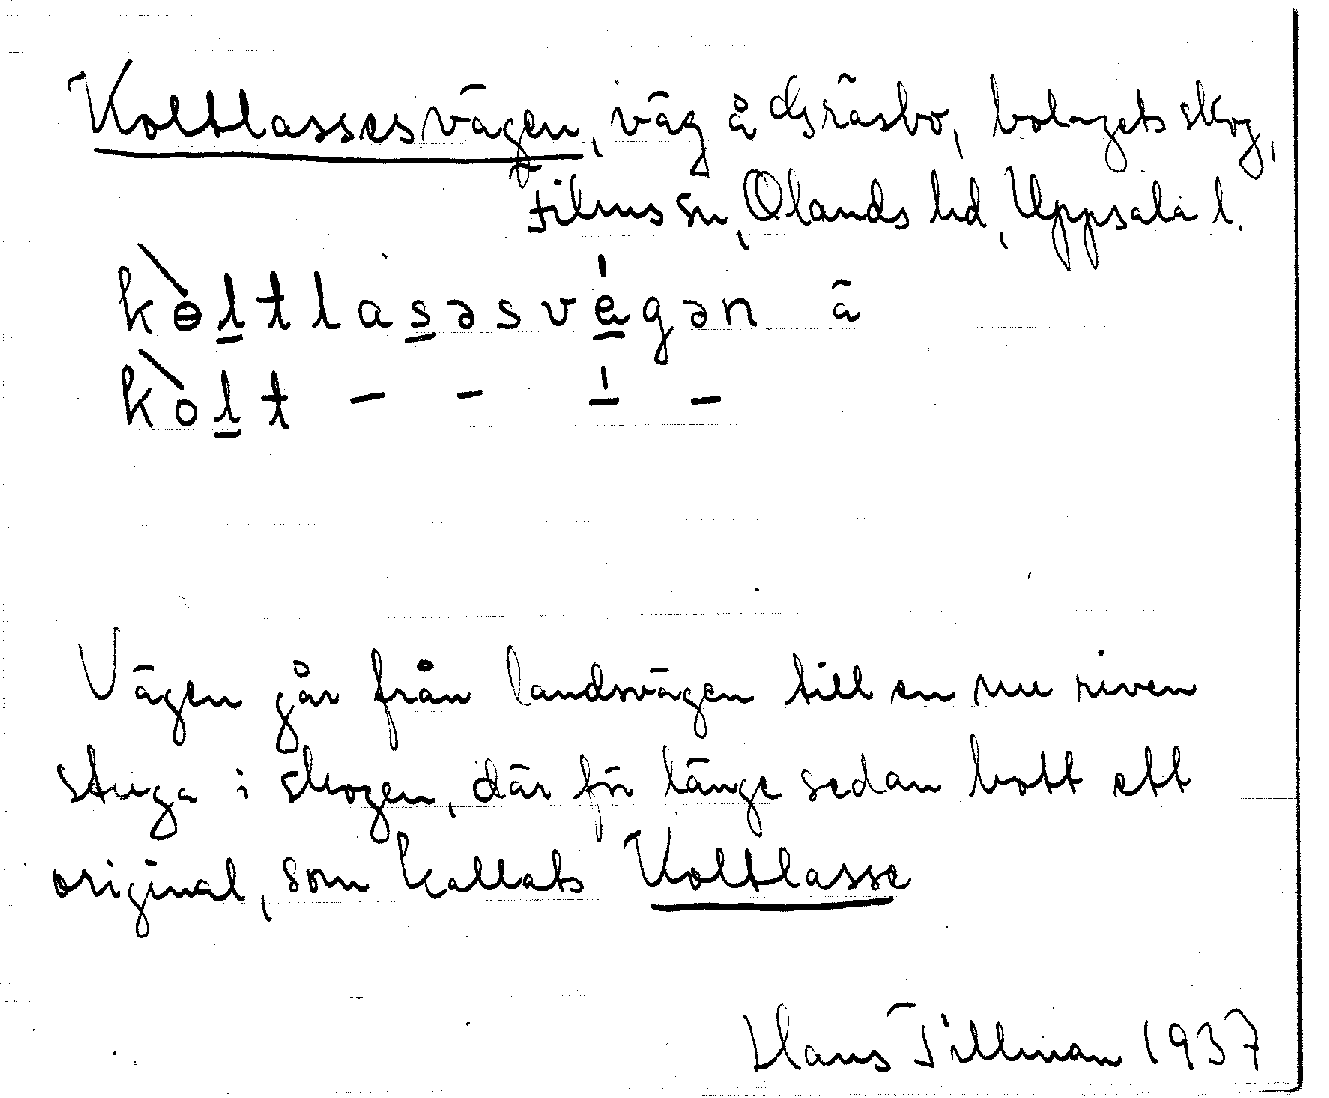 Koltlassesvägen, väg å Gräsbo, bolagets skog,
Films sn, Olands hd, Uppsala l.
kɵ̀ltlasəsvégən ä
kòlt – – –́ –
Vägen går från landsvägen till en nu riven
stuga i skogen, där för länge sedan bott ett
original, som kallats Koltlasse
Hans Tillman 1937